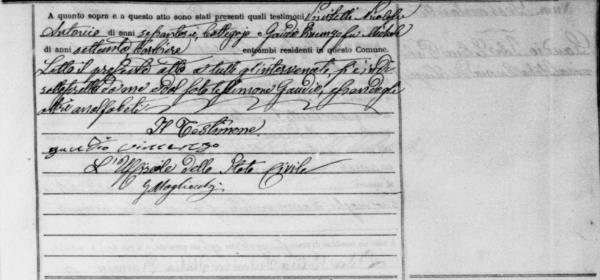 A quanto sopra e a questo atto sono stati presenti quali testimoni
Antonio di anni sessantasei, bottegajo e Gaudio Vincenzo fu Michele
di anni settanta barbiere entrambi residenti in questo Comune.
Letto il presente atto a tutti gl'intervenuti, si è
sottoscritto da me e dal solo testimone Gaudio, essendo gli
altri analfabeti
Il Testimone
gaudio vincenzo
L'Uffiziale dello Stato Civile